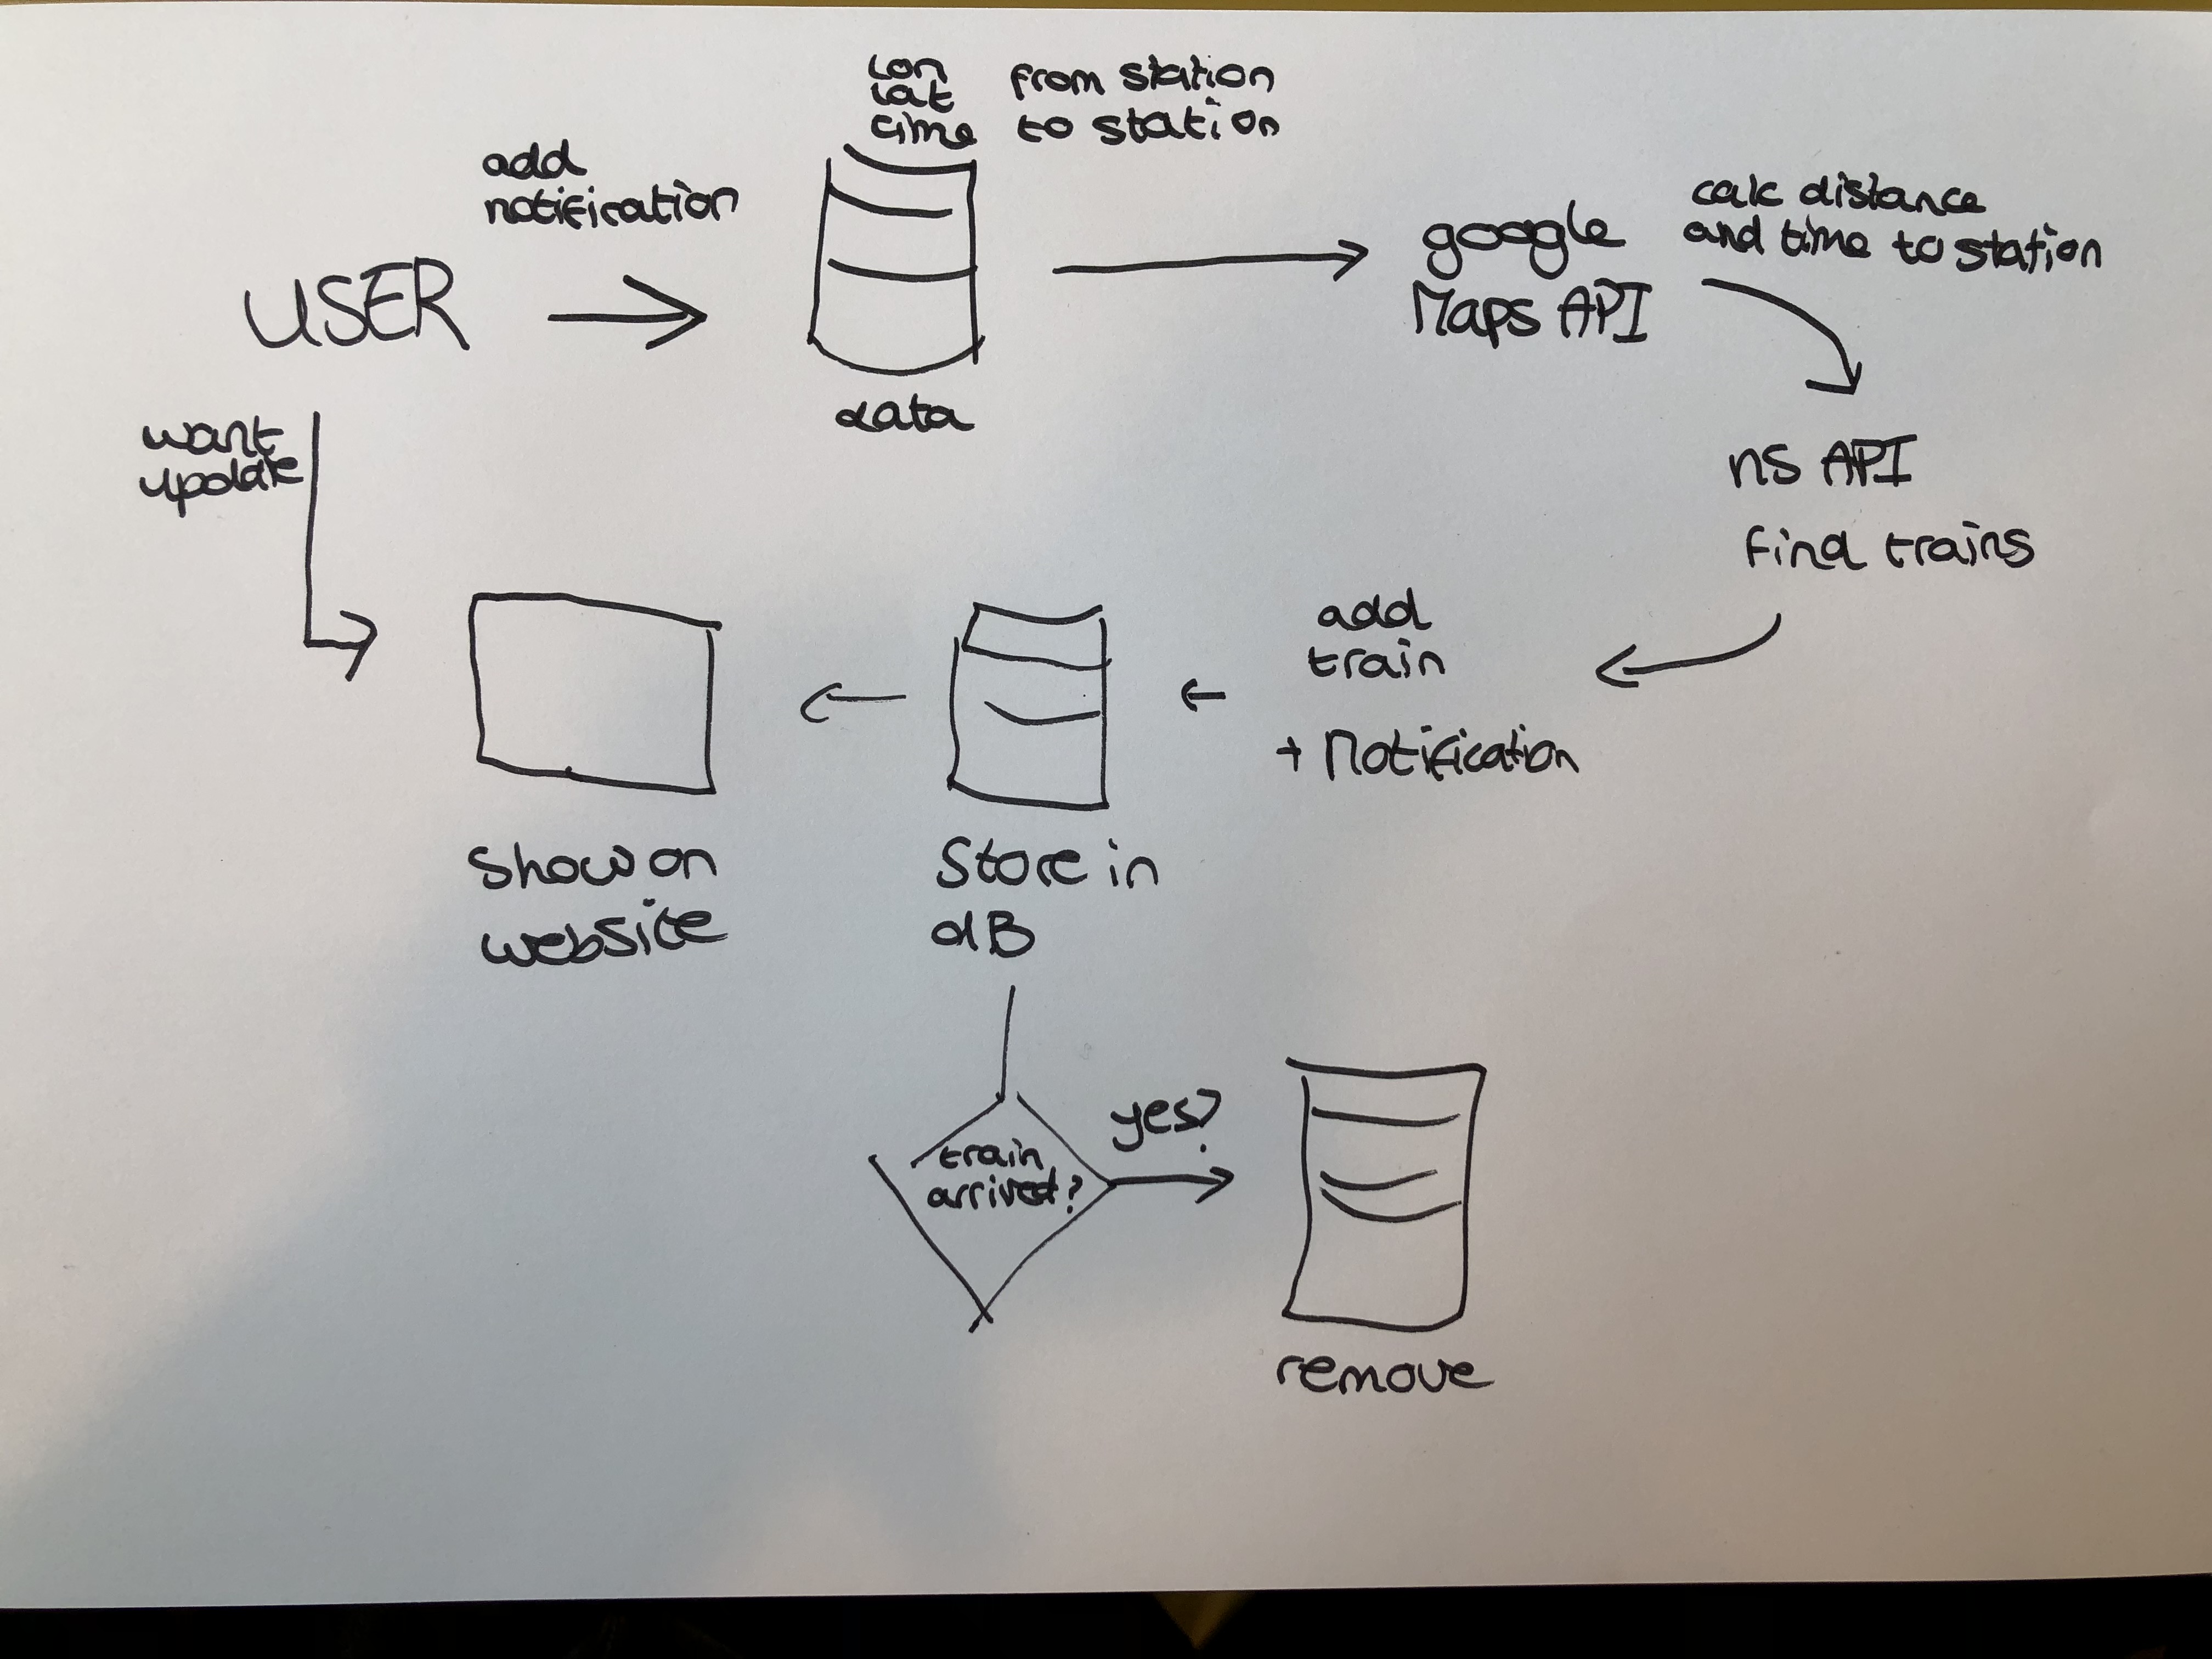 USER
add
notification
lon
lat
time
from station
to station
data
google
Maps API
calc distance
and time to station
want
update
ns API
find trains
add
train
+ Notification
Store in
dB
Show on
website
train
arrived?
yes?
remove